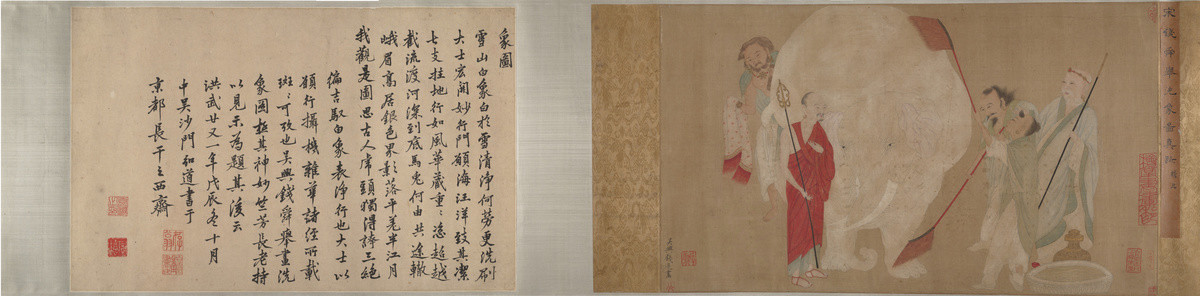 宋錢舜舉洗象圖真跡
象圖
雪山白象白於雪清淨何勞更洗刷
大士宏開妙行門願海汪洋致其潔
七支拄地行如風華藏重〻恣超越
截流渡河深到底馬兎何由共途轍
峨眉高居銀色界影落平羌半江月
我觀是圖思古人虎頭獨得稱三絕
徧吉馭白象表淨行也大士以
願行攝機雜華諸經所載
班〻可攷也吳興錢舜舉畫洗
象圖極其神妙竺芳長老持
以見示為題其後云
洪武廿又一年戊辰冬十月
中吳沙門道書于
京都長干之西齋